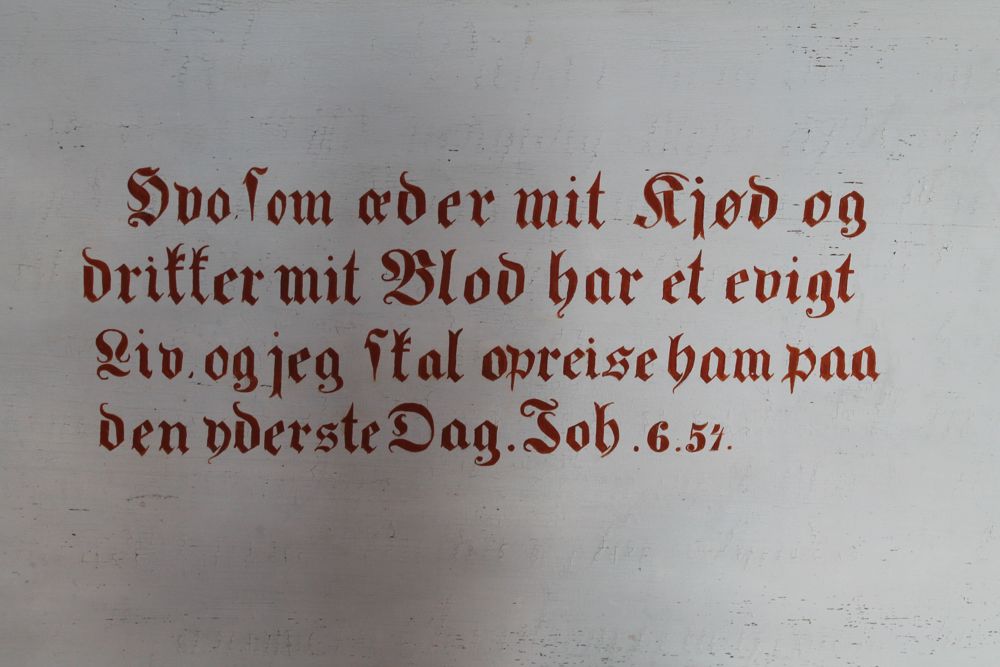 Hvo som æder mit Kjød og
drikker mit Blod har et evigt
Liv. og jeg skal opreise ham paa
den yderste Dag. Joh. 6.54.